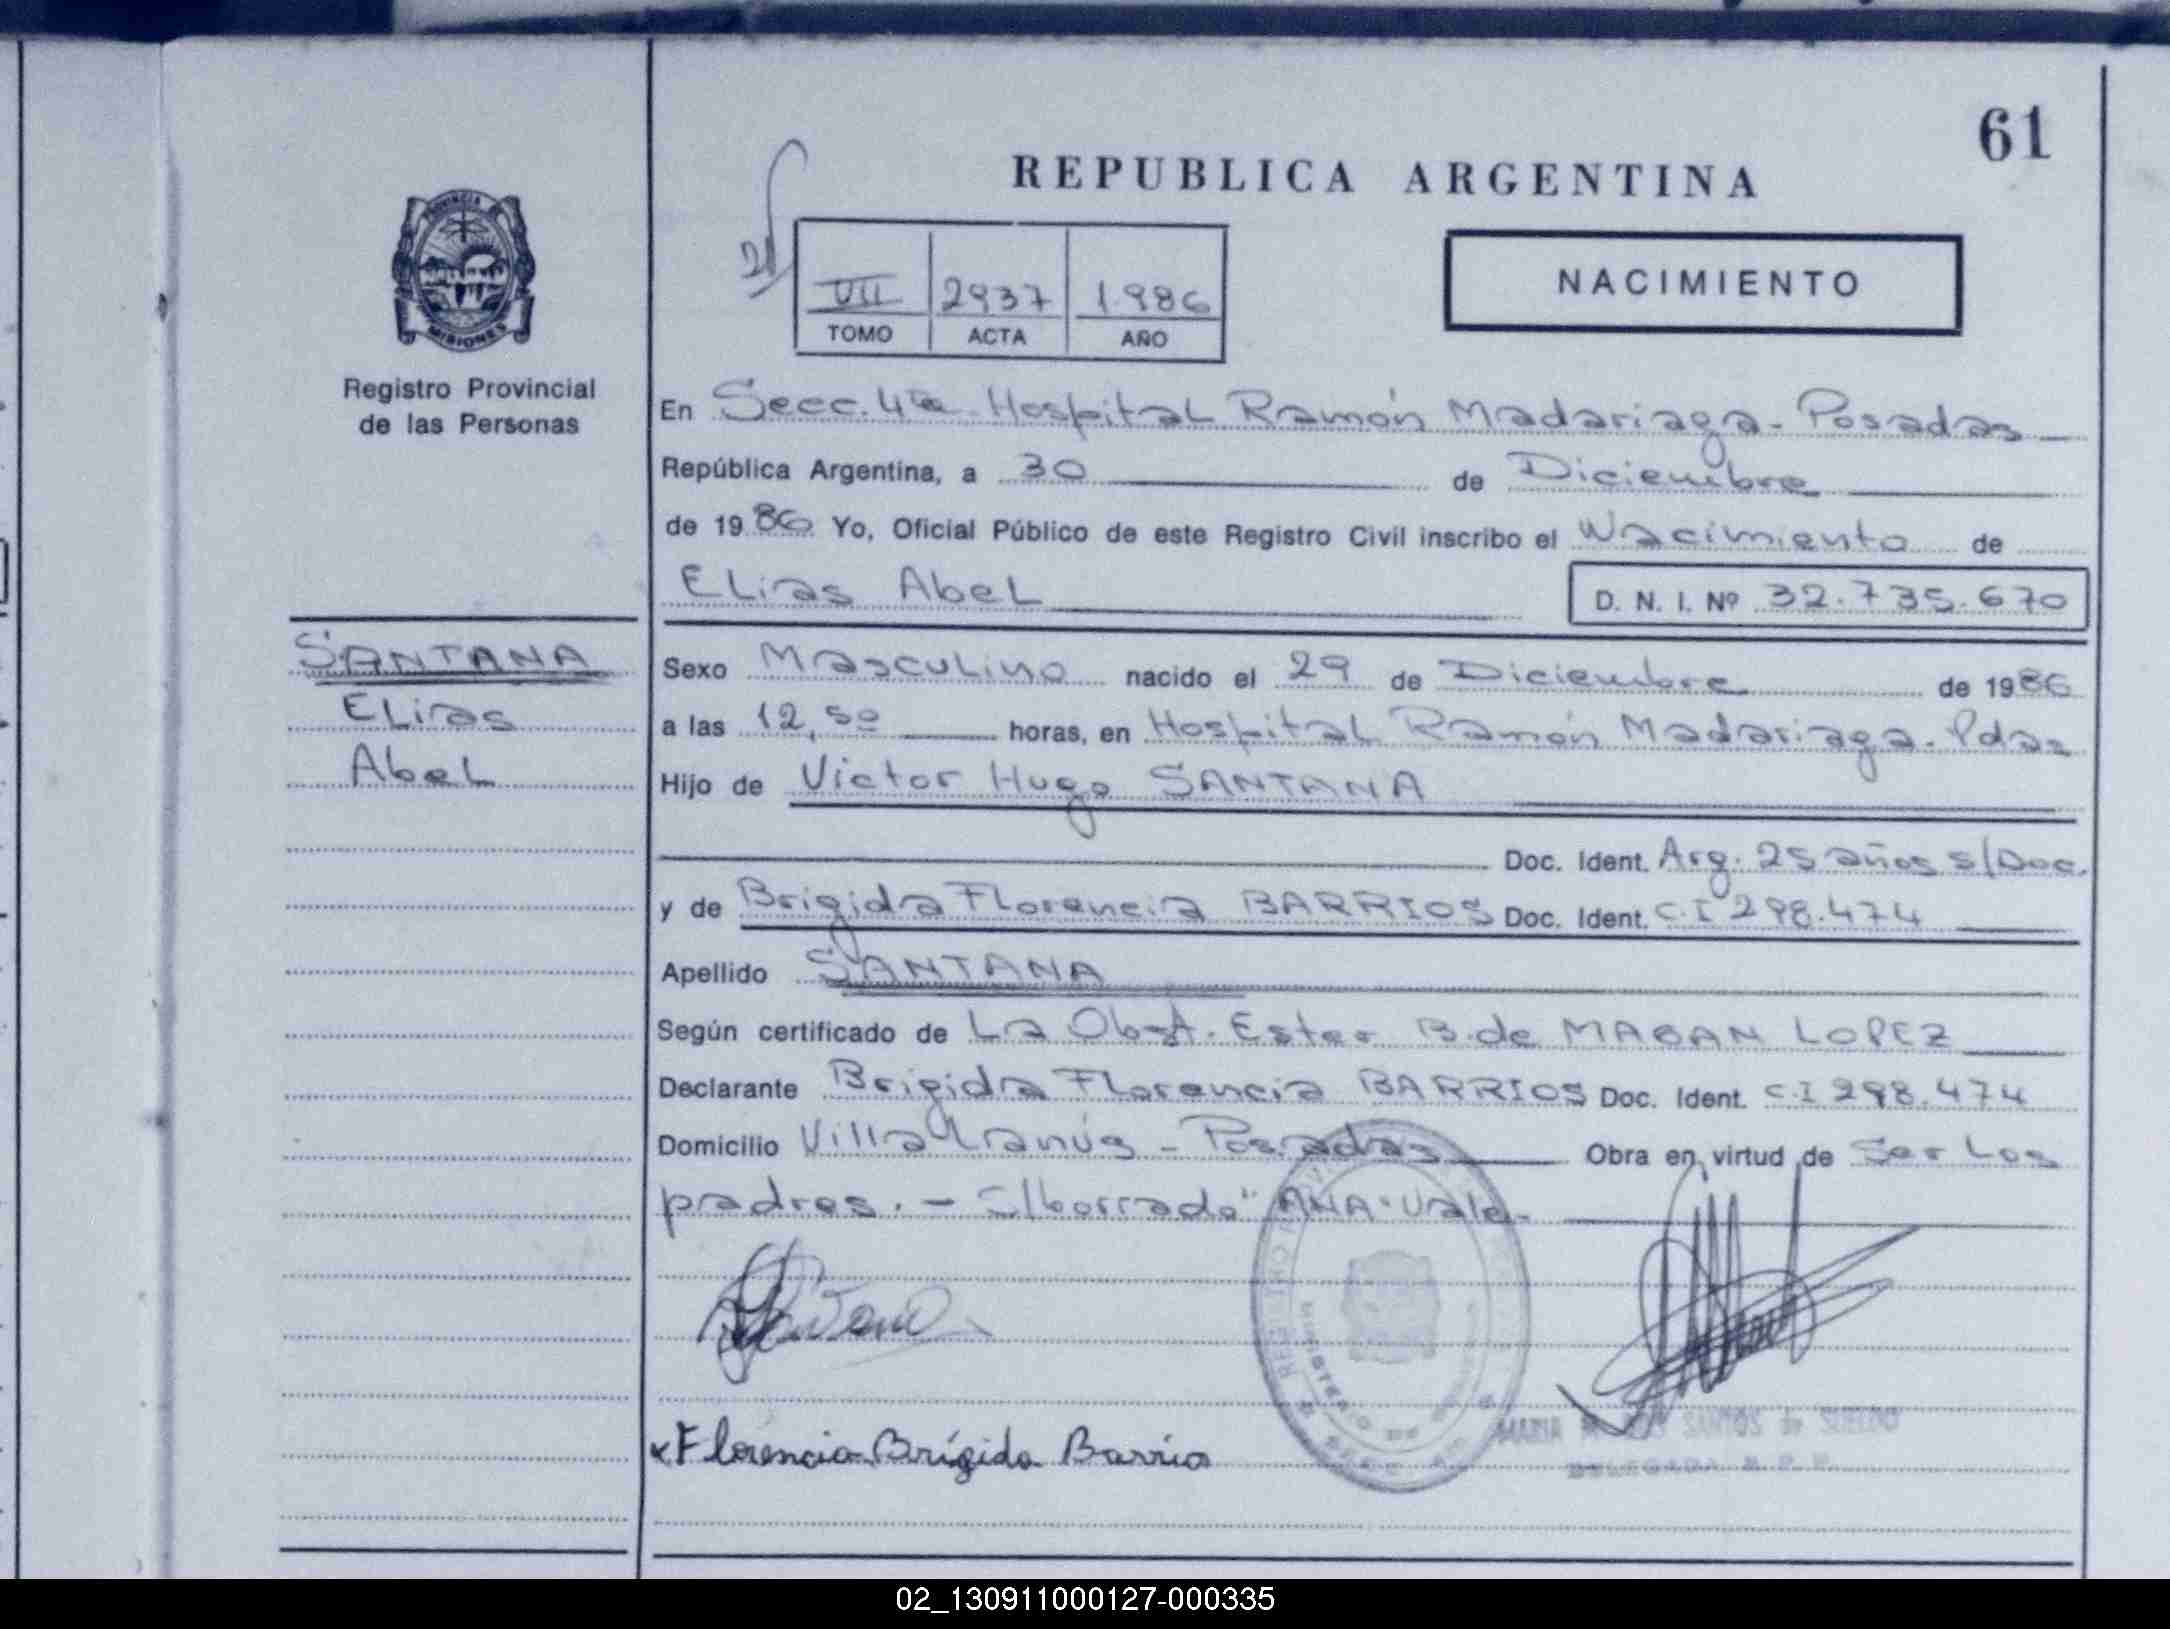 61
REPUBLICA ARGENTINA
PROVINCIA DE
MISIONES
NACIMIENTO
VII 2937 1986
TOMO ACTA AÑO
Registro Provincial
de las Personas
En Secc. 4ta Hospital Ramón Madariaga - Posadas
República Argentina, a 30 de Diciembre
de 1986 Yo, Oficial Público de este Registro Civil inscribo el Nacimiento de
Elias Abel D. N. I. Nº 32.735.670
SANTANA
Elias
Abel
Sexo Masculino nacido el 29 de Diciembre de 1986
a las 12,50 horas, en Hospital Ramón Madariaga - Pdas
Hijo de Victor Hugo SANTANA
Doc. Ident. Arg. 25 años s/Doc.
y de Brigida Florencia BARRIOS Doc. Ident. C.I 298.474
Apellido SANTANA
Según certificado de La Obst. Ester B. de MABAN LOPEZ
Declarante Brigida Florencia BARRIOS Doc. Ident. C.I 298.474
Domicilio Villa Lanús - Posadas Obra en virtud de Ser Los
padres. - S/borrado "ANA" Vale.
Florencia Brígida Barrio
MARIA SANTOS de SUELDO
DELEGADA R. P. P.
02_130911000127-000335